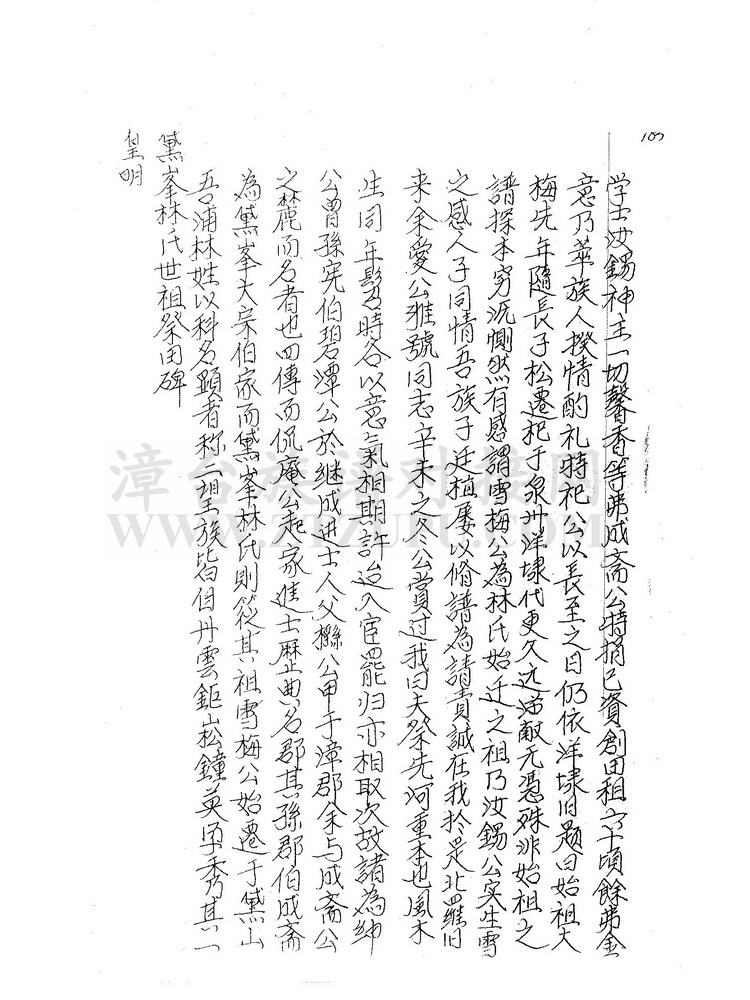 皇明
黛峯林氏世祖祭田碑
吾浦林姓以科名顯者称一二望族皆伯丹雲鉅崧鐘英孕秀乃其一
為黛峯大宗伯家而黛峯林氏則筱其祖雪梅公始遷于黛山
之麓而名者也四傳而侃庵公起家進士歷典名郡其孫郡伯成斎
公曾孫宪伯碧潭公於继成進士人父縣公甲于漳郡余与成斎公
生同年髫時各以意氣相期許迨入宦罷归亦相取次故諸為紳
来余愛公雅號同志辛未之冬公嘗过我曰夫祭先河重本也風木
之感人子同情吾族子廷植屡以脩譜為請責誠在我於是北羅旧
譜探本穷沠惻然有感謂雪梅公為林氏始迁之祖乃汝錫公实生雪
梅先年隨長子松遷祀于泉州洋埭代更久远湮敵无憑殊非始祖之
意乃萃族人揆情酌礼時祀公以長至之日仍依洋埭旧题曰始祖大
学士汝錫神主一切馨香等弗成斎公特捐己資創田租六十頃餘弗金
漳台族谱对接网
WWW.ZTZUPU.COM